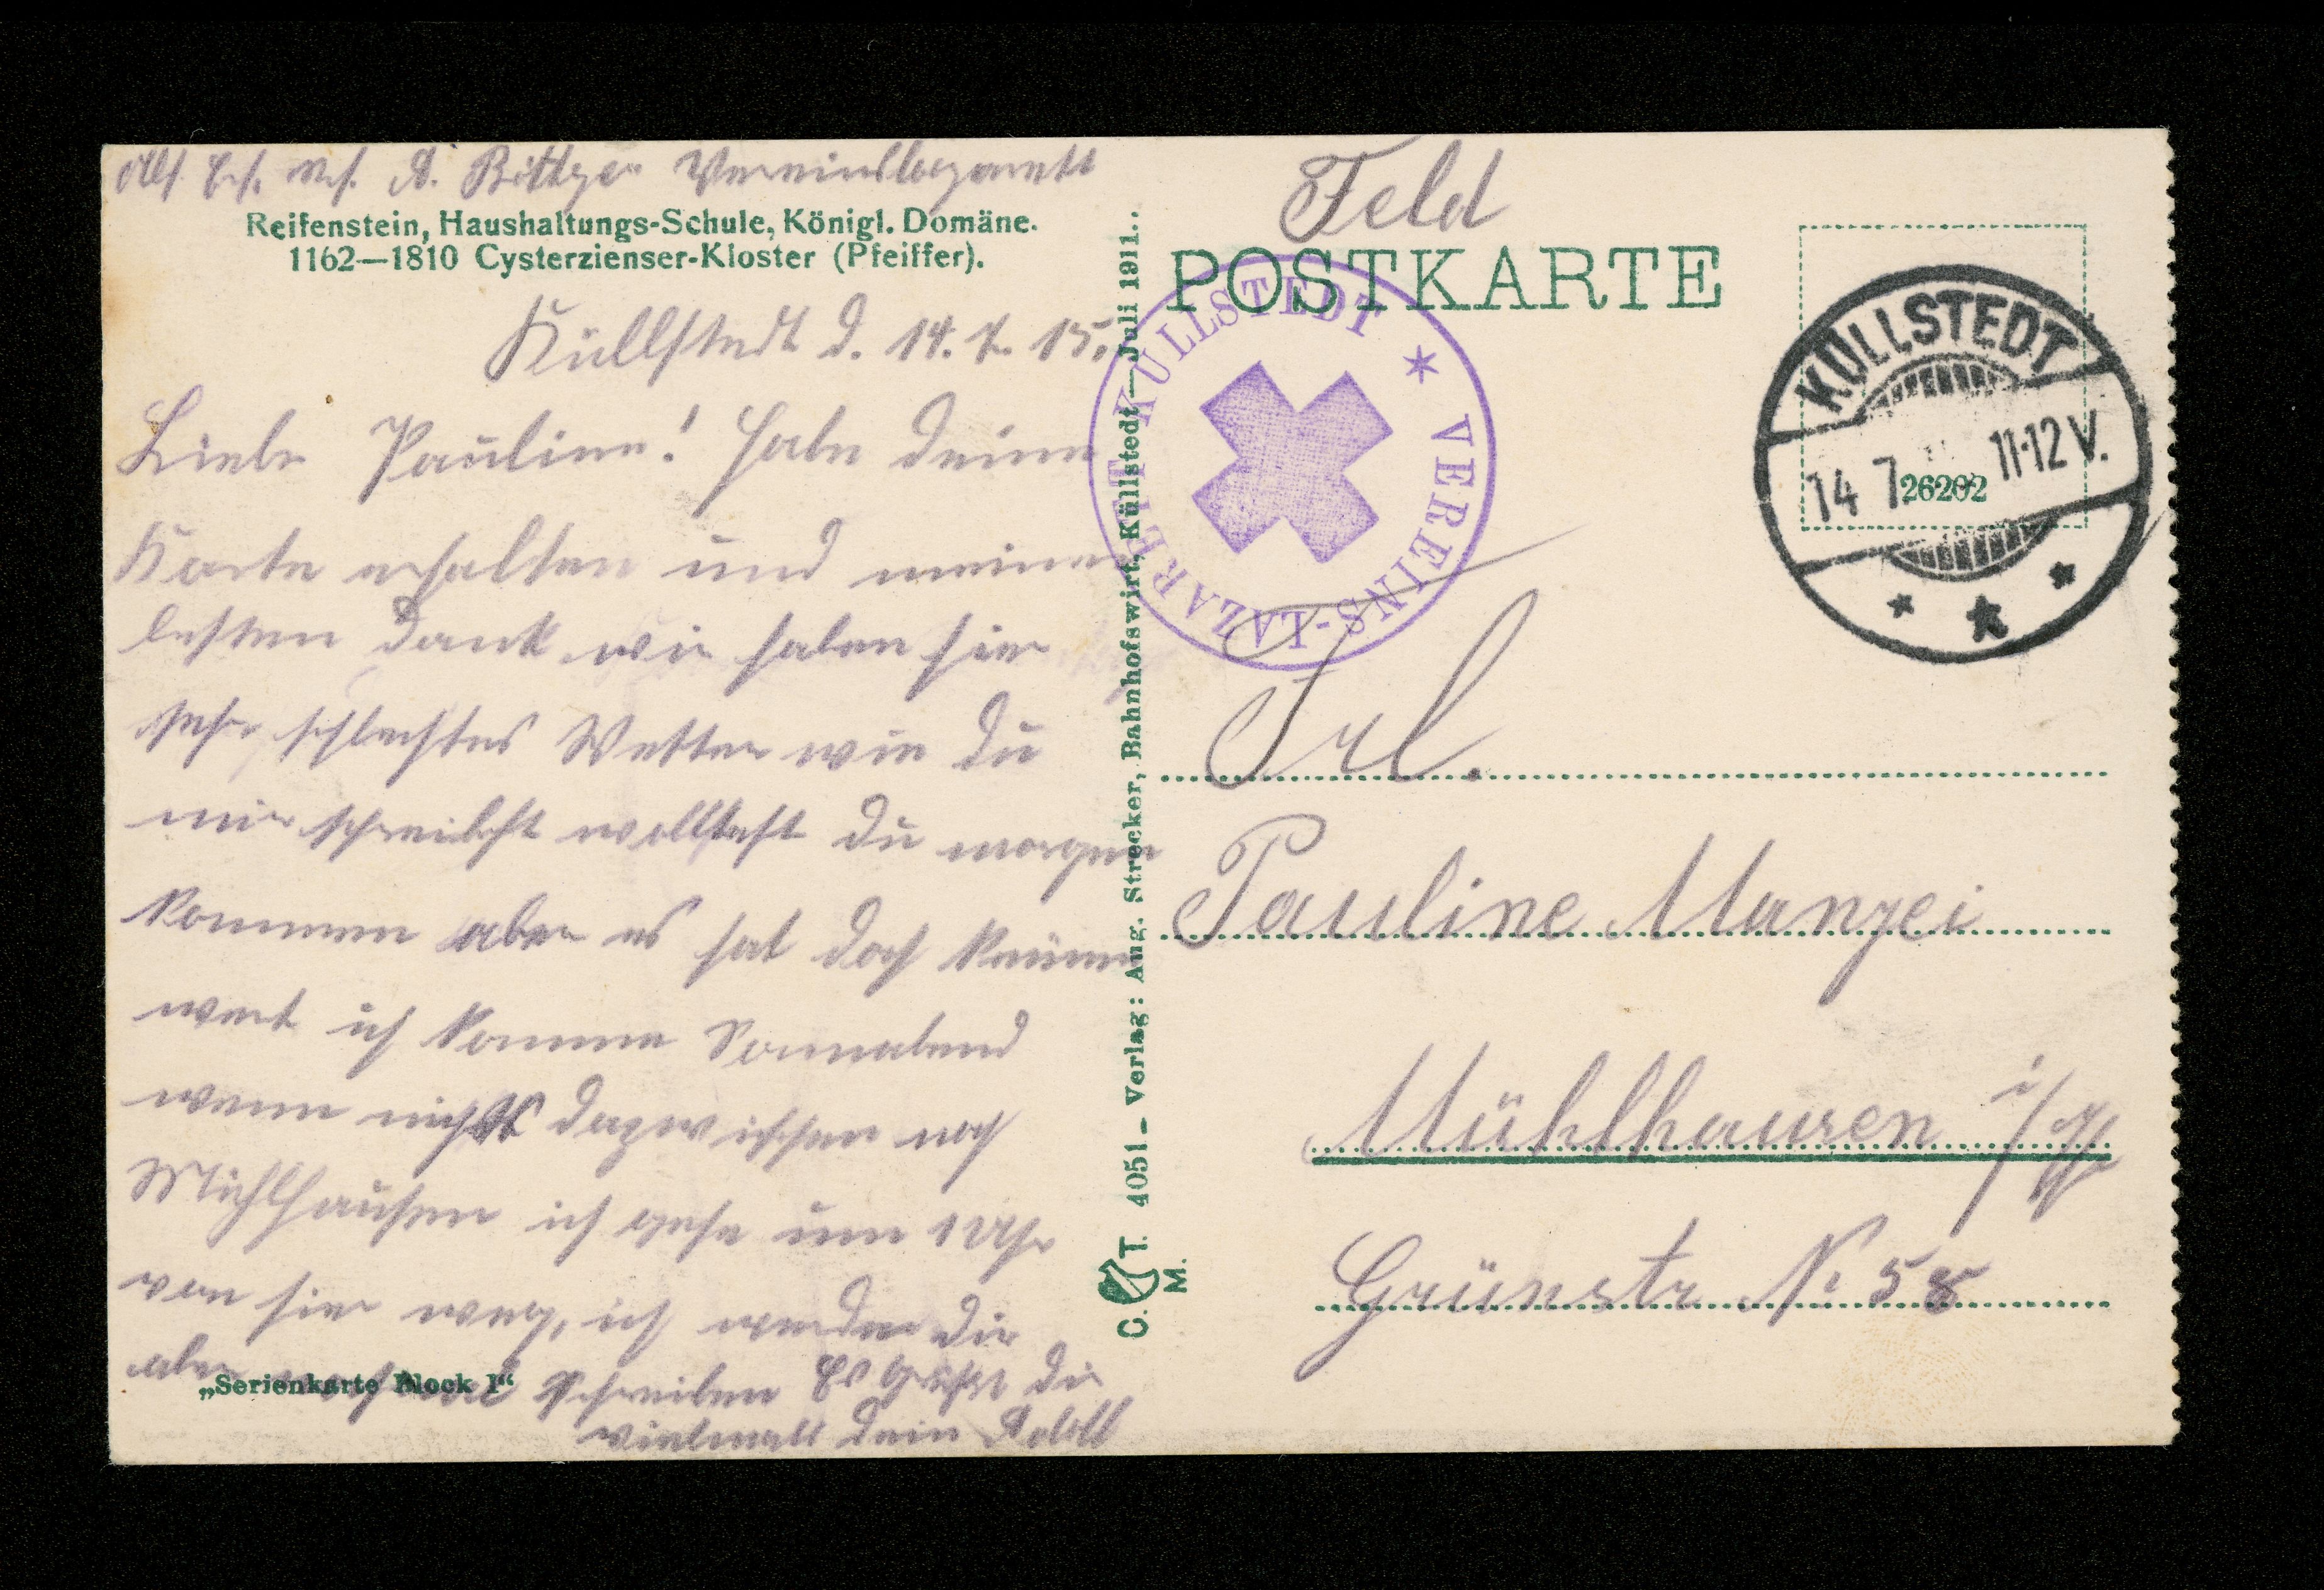 Abs. Ers. Res. A. Böttger Vereinslazarett
Reifenstein, Haushaltungs-Schule, Königl. Domäne.
1162—1810 Cysterzienser-Kloster (Pfeiffer).
Küllstedt d. 14. 7. 15.
Liebe Pauline! habe deine
Karte erhalten und meinen
besten Dank wir haben hier
sehr schlechtes Wetter wie du
mir schreibst wolltest du morgen
kommen aber es hat doch keinen
wert ich komme Sonnabend
wenn nichts dazwischen nach
Mühlhausen ich gehe um 1 Uhr
von hier weg, ich werde dir
aber schreiben Es Grüßt dir
vielmals dein Adolf
„Serienkarte Block I“
C. T. M. 4051 – Verlag: Aug. Strecker, Bahnhofswirt, Küllstedt — Juli 1911.
Feld
POSTKARTE
KÜLLSTEDT * VEREINS-LAZARETT
KÜLLSTEDT
14 7 11-12 V.
26202
Frl.
Pauline Mangei
Mühlhausen i/Th
Grünstr № 58